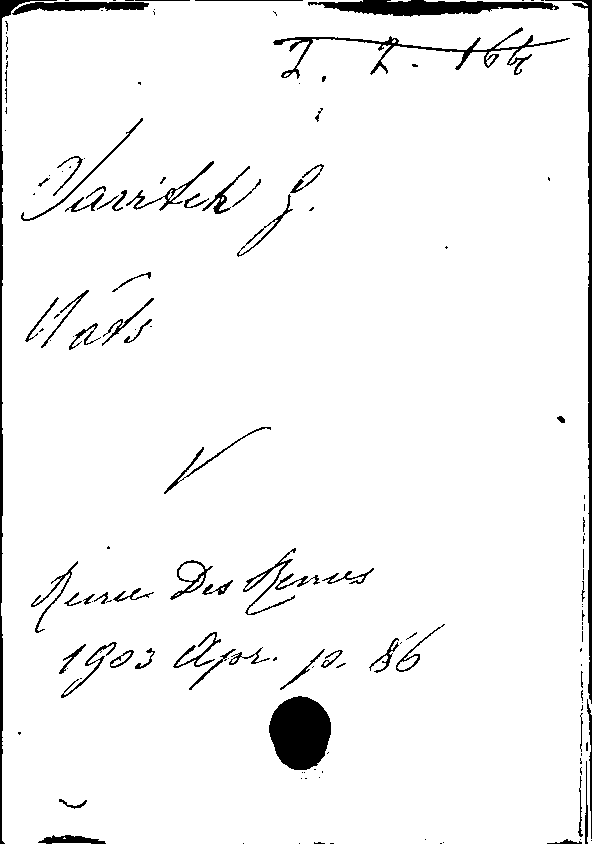 2. 2. 166
Savitch G.
Mots
V
Revue Des Revues
1903 Apr. p. 86